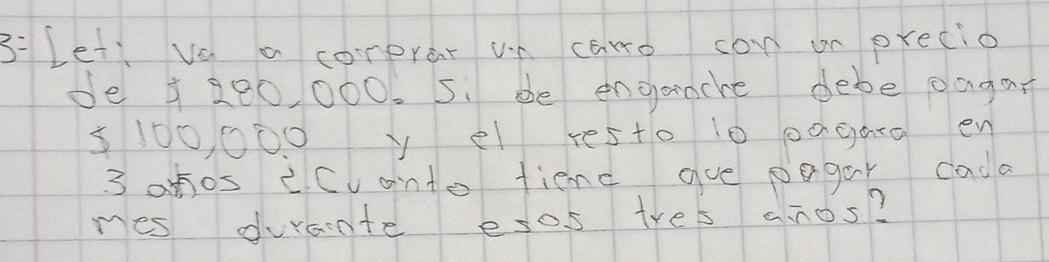 3= Leti va a comprar un carro con un precio
de $ 280,000. Si de enganche debe pagar
$ 100,000 y el resto lo pagara en
3 años ¿Cuanto tiene que pagar cada
mes durante esos tres años?